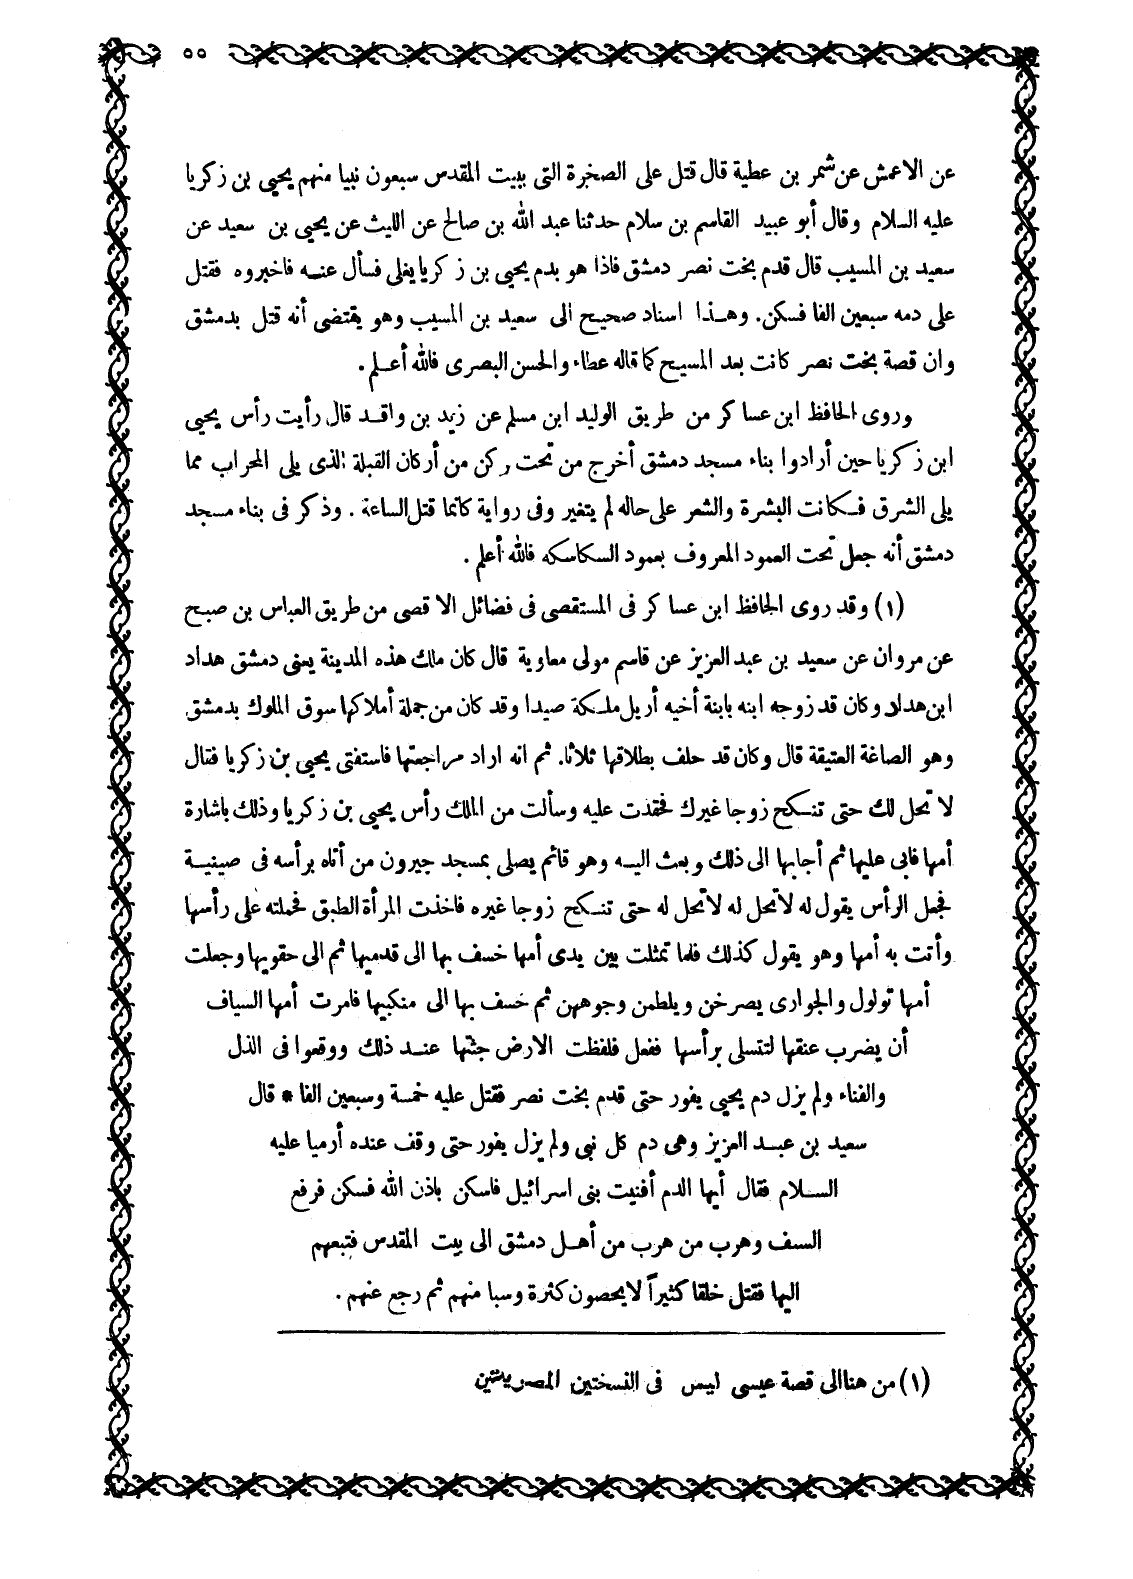 ٥٥
عن الاعمش عن شمر بن عطية قال قتل على الصخرة التى ببيت المقدس سبعون نبيا منهم يحيى بن زكريا
عليه السلام وقال أبو عبيد القاسم بن سلام حدثنا عبد الله بن صالح عن الليث عن يحيى بن سعيد عن
سعيد بن المسيب قال قدم بخت نصر دمشق فاذا هو بدم يحيى بن زكريا يغلى فسأل عنه فاخبروه فقتل
على دمه سبعين الفا فسكن. وهذا اسناد صحيح الى سعيد بن المسيب وهو يقتضى أنه قتل بدمشق
وان قصة بخت نصر كانت بعد المسيح كما قاله عطاء والحسن البصرى فالله أعلم.
وروى الحافظ ابن عساكر من طريق الوليد ابن مسلم عن زيد بن واقد قال رأيت رأس يحيى
ابن زكريا حين أرادوا بناء مسجد دمشق أخرج من تحت ركن من أركان القبلة الذى يلى المحراب مما
يلى الشرق فكانت البشرة والشعر على حاله لم يتغير وفى رواية كانما قتل الساعة. وذكر فى بناء مسجد
دمشق أنه جعل تحت العمود المعروف بعمود السكاسكه فالله أعلم.
(١) وقد روى الحافظ ابن عساكر فى المستقصى فى فضائل الاقصى من طريق العباس بن صبح
عن مروان عن سعيد بن عبد العزيز عن قاسم مولى معاوية قال كان ملك هذه المدينة يعنى دمشق هداد
ابن هداد وكان قد زوجه ابنه بابنة أخيه أريل ملكة صيدا وقد كان من جملة أملاكها سوق الملوك بدمشق
وهو الصاغة العتيقة قال وكان قد حلف بطلاقها ثلاثا. ثم انه اراد مراجعتها فاستفتى يحيى بن زكريا فقال
لا تحل لك حتى تنكح زوجا غيرك فحقدت عليه وسألت من الملك رأس يحيى بن زكريا وذلك باشارة
أمها فابى عليها ثم أجابها الى ذلك وبعث اليه وهو قائم يصلى بمسجد جيرون من أتاه برأسه فى صينية
فجعل الرأس يقول له لا تحل له لا تحل له حتى تنكح زوجا غيره فاخذت المرأة الطبق فحملته على رأسها
وأتت به أمها وهو يقول كذلك فلما تمثلت بين يدى أمها خسف بها الى قدميها ثم الى حقويها وجعلت
أمها تولول والجوارى يصرخن ويلطمن وجوههن ثم خسف بها الى منكبيها فامرت أمها السياف
أن يضرب عنقها لتتسلى برأسها ففعل فلفظت الارض جثتها عند ذلك ووقعوا فى الذل
والفناء ولم يزل دم يحيى يفور حتى قدم بخت نصر فقتل عليه خمسة وسبعين الفا * قال
سعيد بن عبد العزيز وهى دم كل نبى ولم يزل يفور حتى وقف عنده أرميا عليه
السلام فقال أيها الدم أفنيت بنى اسرائيل فاسكن باذن الله فسكن فرفع
السف وهرب من هرب من أهل دمشق الى بيت المقدس فتبعهم
اليها فقتل خلقا كثيراً لا يحصون كثرة وسبا منهم ثم رجع عنهم.
(١) من هنا الى قصة عيسى ليس فى النسختين المصريتين